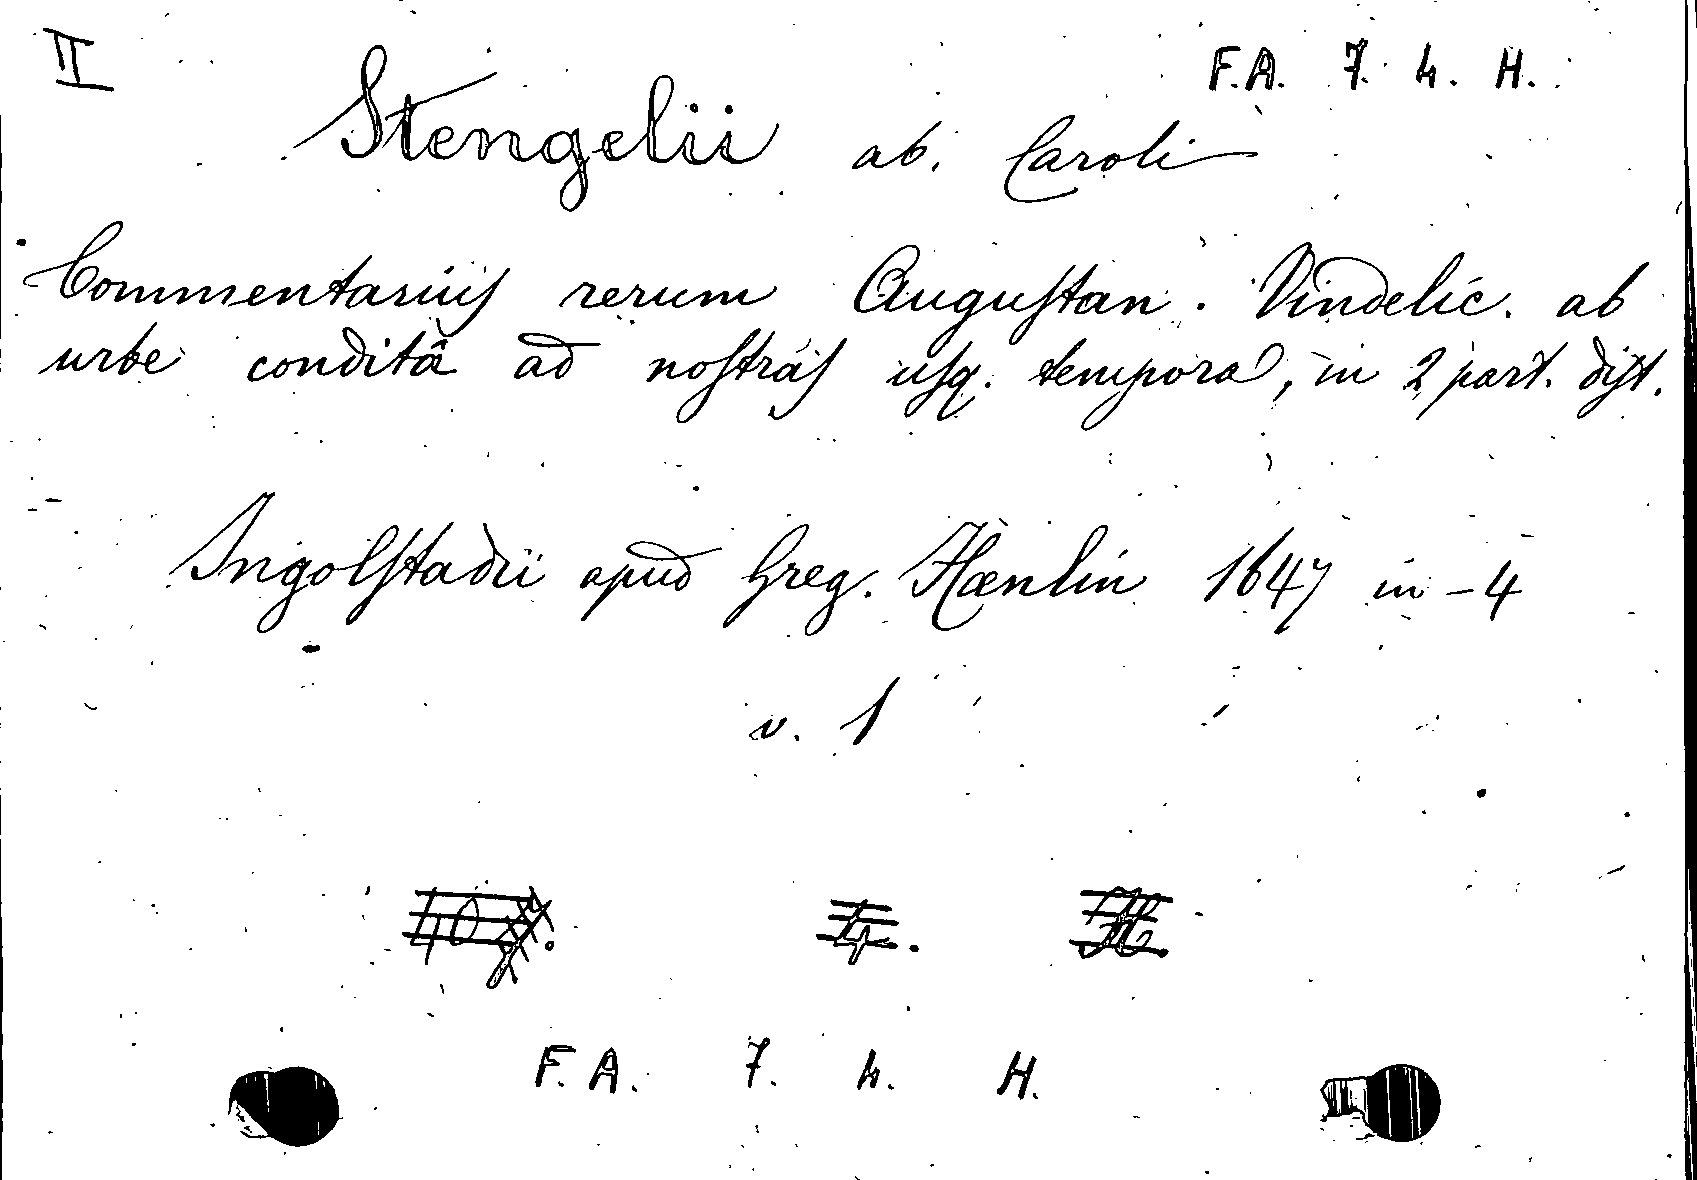 II
F.A. 7. h. H.
Stengelii ab. Caroli
Commentariüs rerum Augustan. Vindelic. ab
urbe conditâ ad nostras usq. tempora, in 2 part. dist.
Ingolstadii apud Greg. Hænlin 1647 in-4
v. 1
4. H
F.A. 7. h. H.